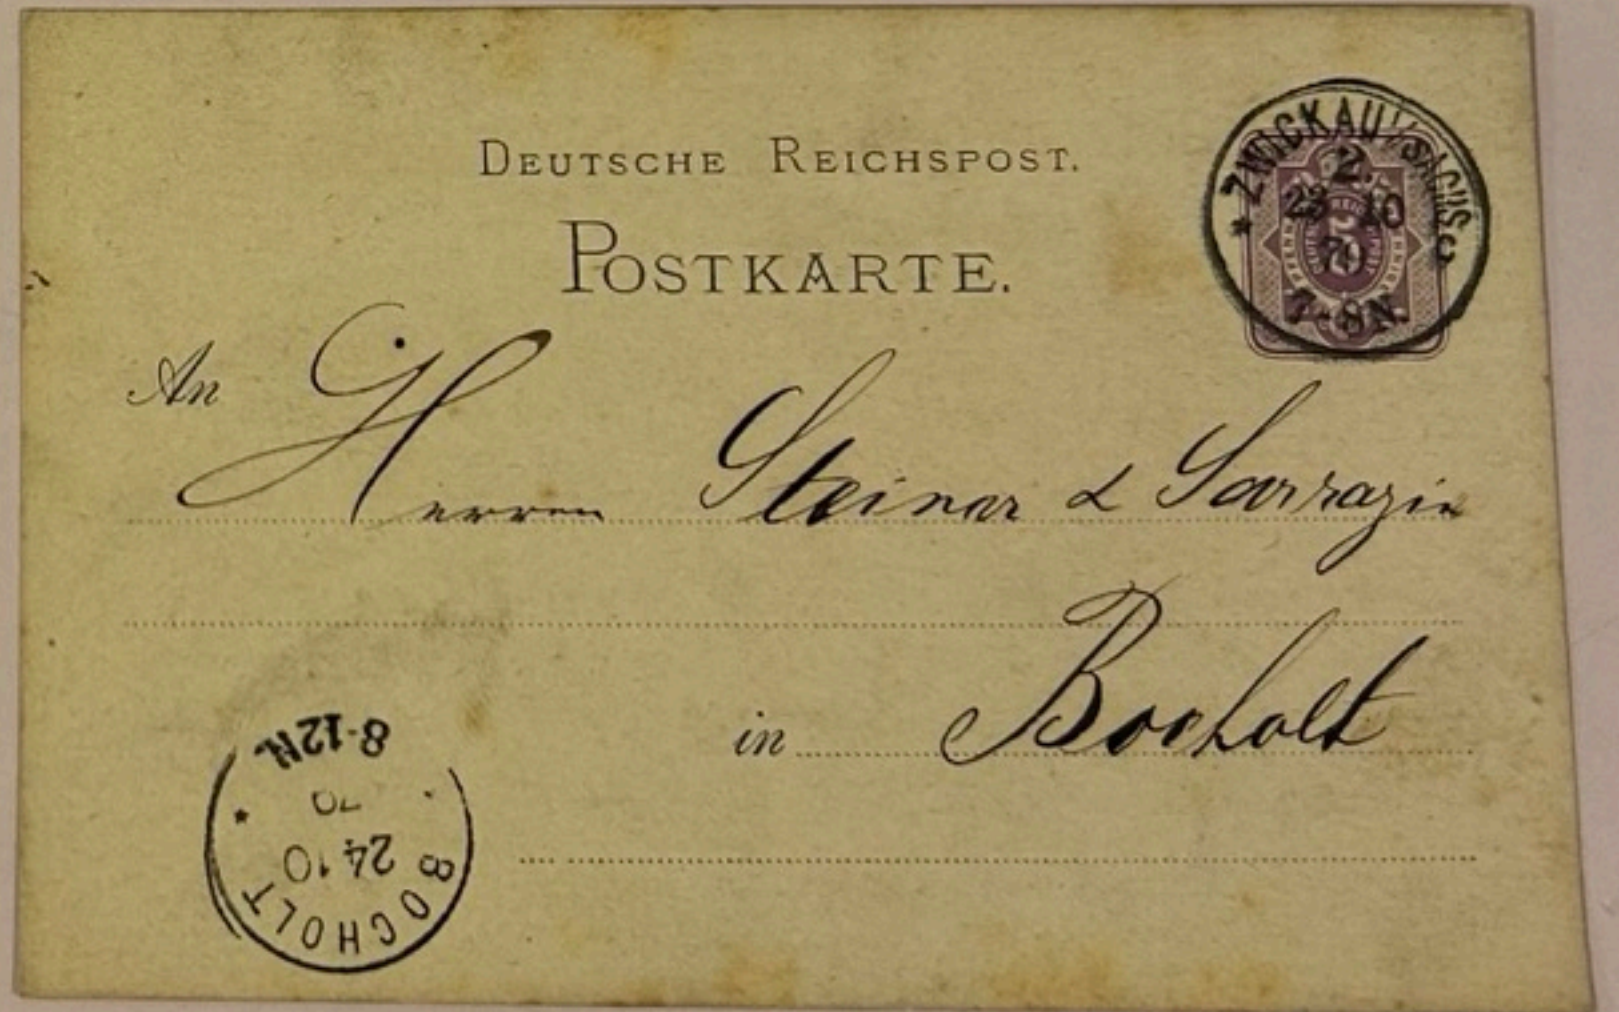 DEUTSCHE REICHSPOST.
POSTKARTE.
ZWICKAU (SACHS.)
2.
23 10
7-8N.
5
PFENNIG
PFENNIG
An Herren Steiner & Sarrazin
in Bocholt
BOCHOLT
24 10
8-12N.